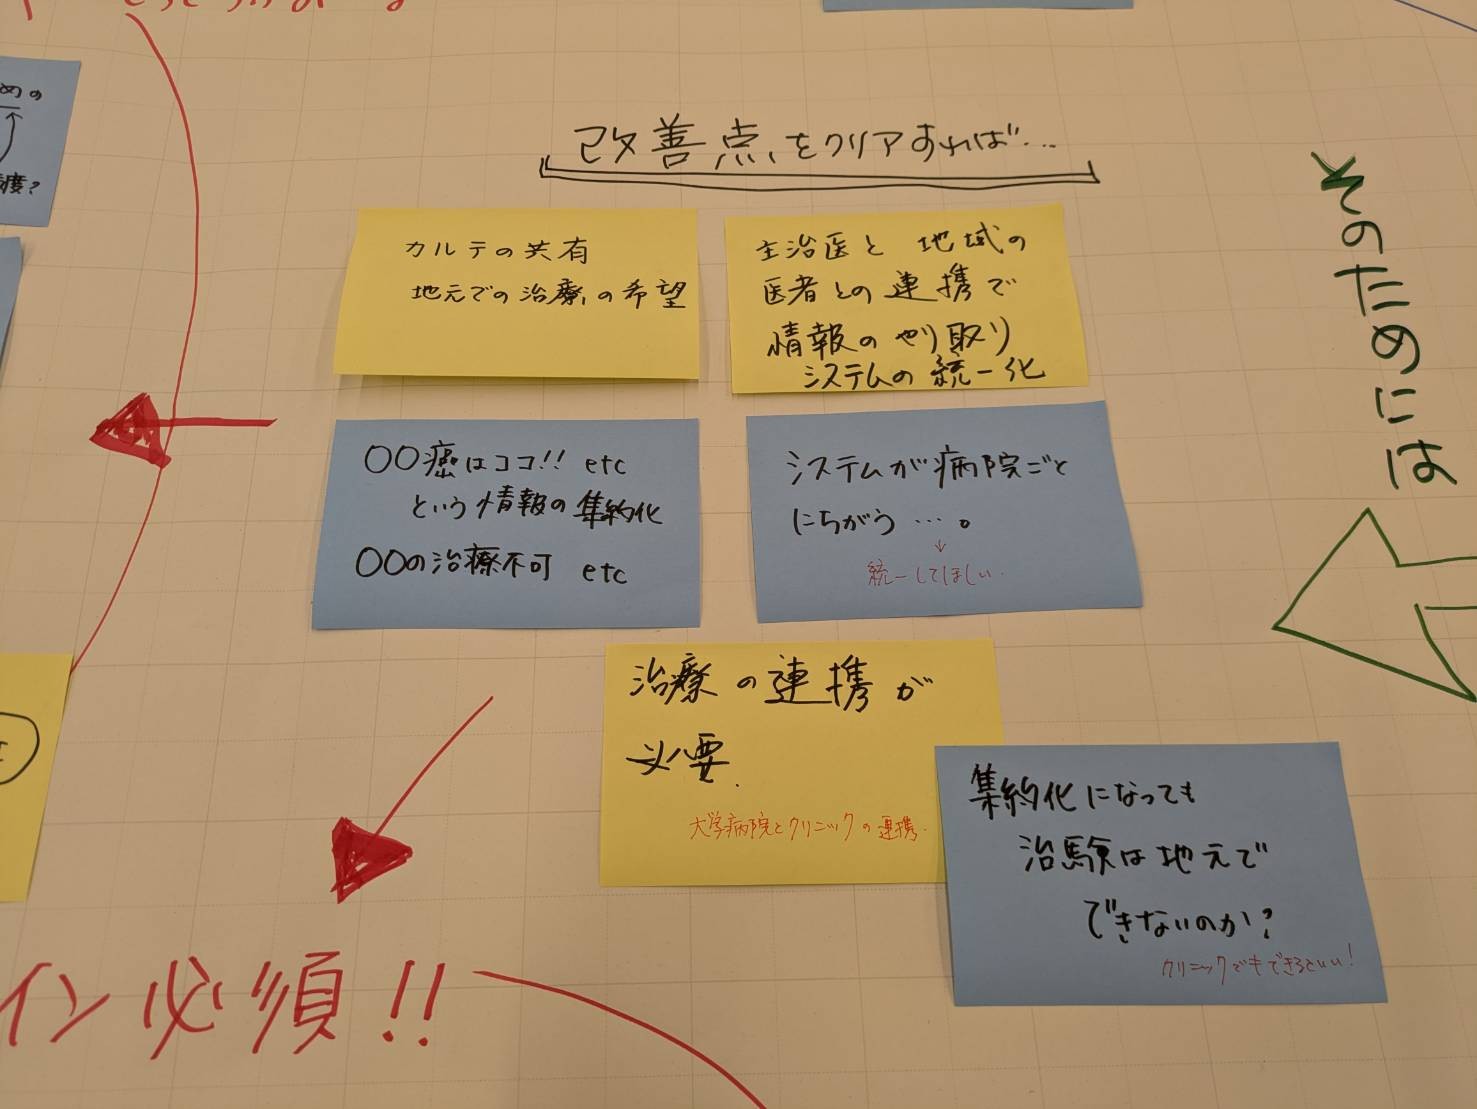 めの
度?
改善点をクリアすれば…
カルテの共有
地元での治療の希望
主治医と 地域の
医者との連携で
情報のやり取り
システムの統一化
〇〇癌はココ!! etc
という情報の集約化
〇〇の治療不可 etc
システムが病院ごと
にちがう…。
↓
統一してほしい
治療の連携が
必要.
大学病院とクリニックの連携.
集約化になっても
治験は地元で
できないのか?
クリニックでもできるといい!
そのためには
イン必須!!